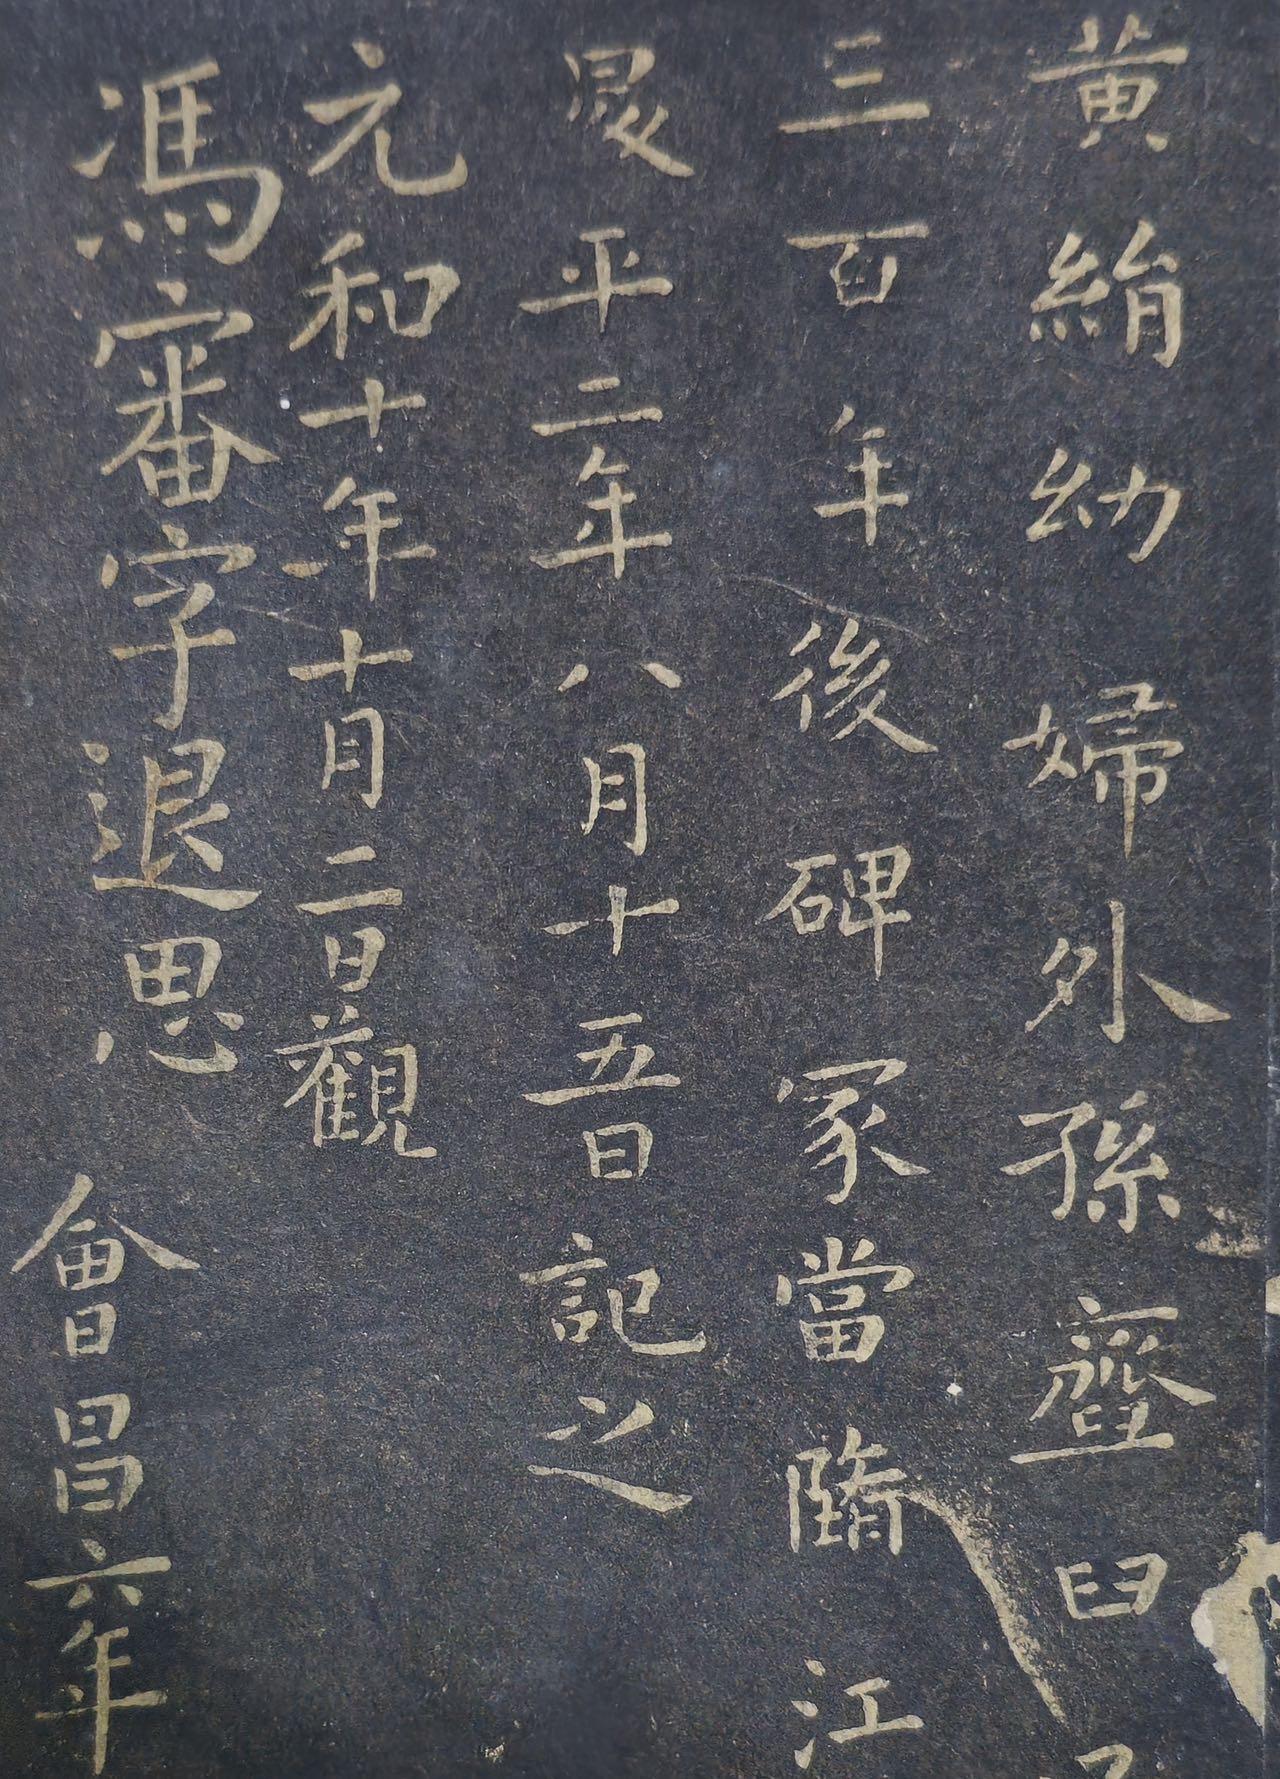 黄絹幼婦外孫齏臼
三百年後碑冢當隋江
平二年八月十五日記之
元和十年十月二日觀
馮審字退思
會昌六年